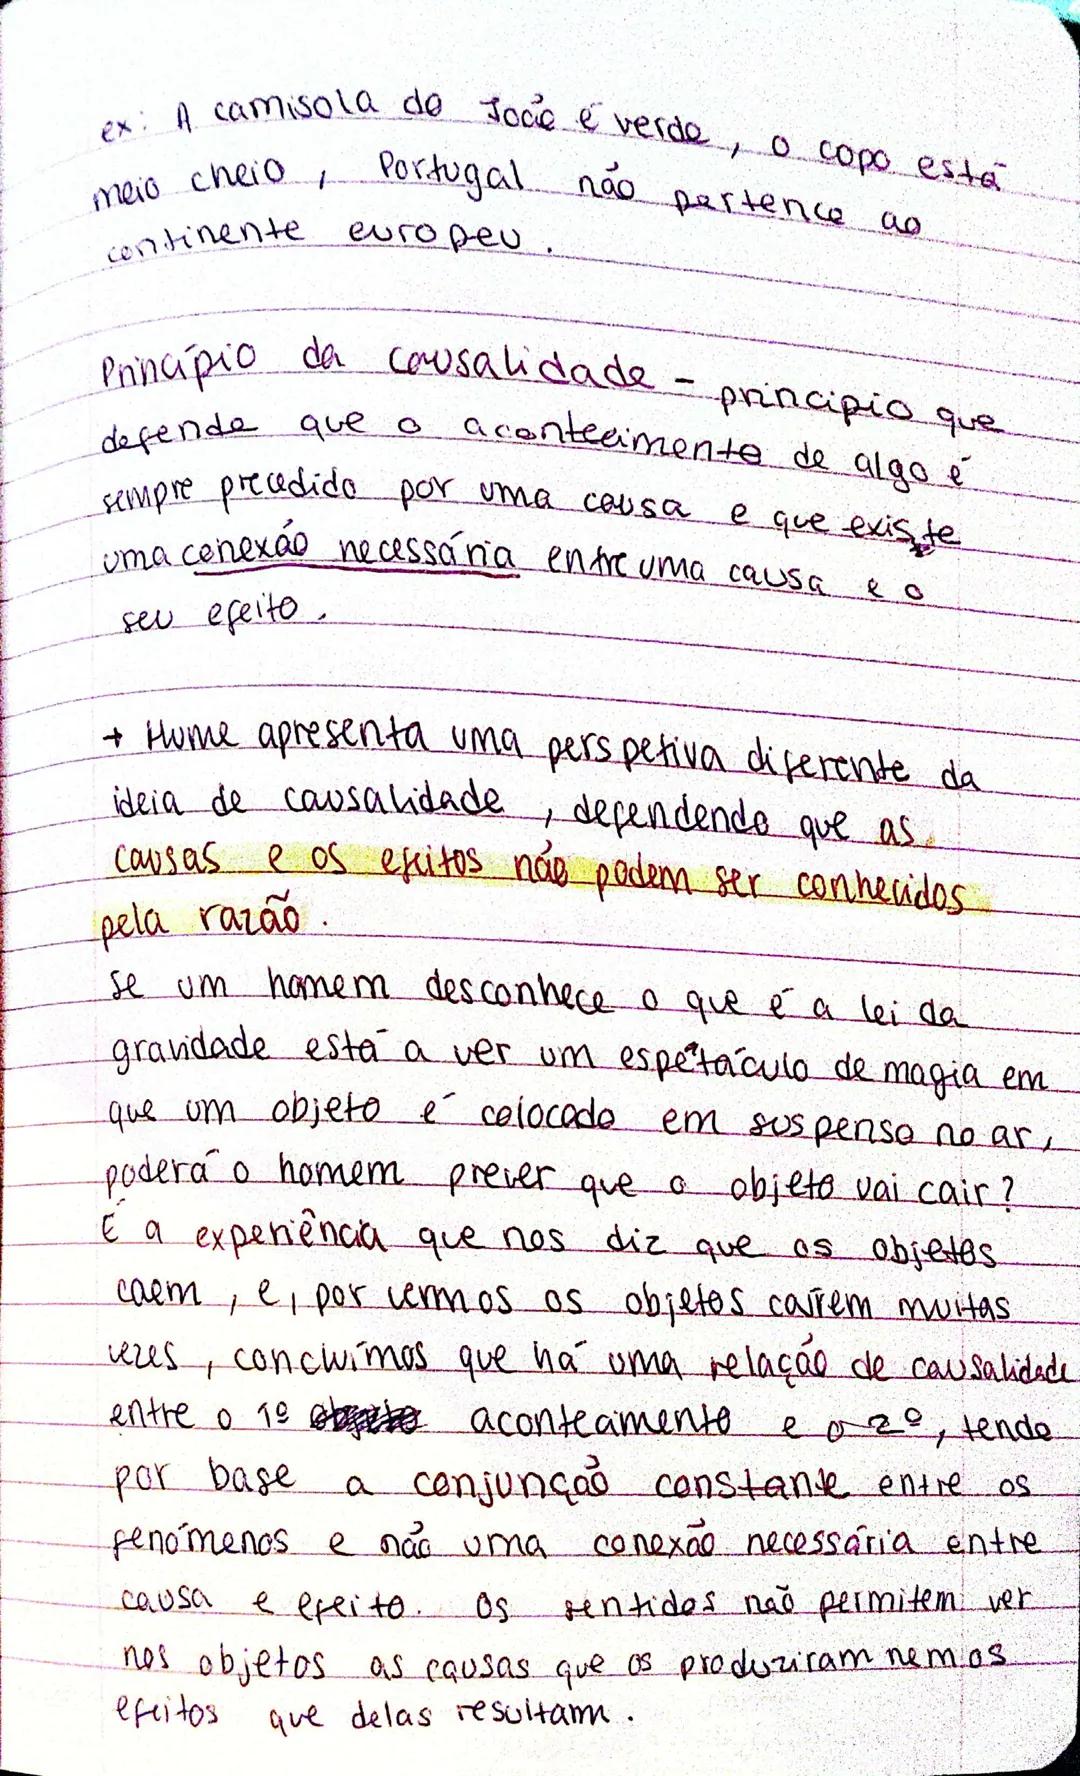 ex: A camisola do João é verde, o copo está
meio cheio, Portugal não pertence ao
continente europeu.
Princípio da causalidade - principio que
defende que o acontecimento de algo é
sempre precedido por uma causa e que existe
uma conexão necessária entre uma causa e o
seu efeito.
→ Hume apresenta uma perspetiva diferente da
ideia de causalidade, defendendo que as
causas e os efeitos não podem ser conhecidos
pela razão.
Se um homem desconhece o que é a lei da
gravidade está a ver um espetáculo de magia em
que um objeto é colocado em suspenso no ar,
poderá o homem prever que o objeto vai cair?
É a experiência que nos diz que os objetos
caem, e, por vermos os objetos cairem muitas
vezes, concluímos que há uma relação de causalidade
entre o 1º acontecimento e o 2º, tendo
por base a conjunção constante entre os
fenómenos e não uma conexão necessária entre
causa e efeito. Os sentidos não permitem ver
nos objetos as causas que os produziram nem os
efeitos que delas resultam.